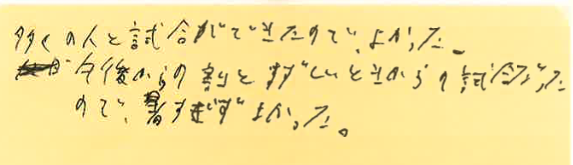 多くの人と試合ができたので、よかった。
今後からの割とすずしいときからの試合だった
ので、暑すぎずよかった。